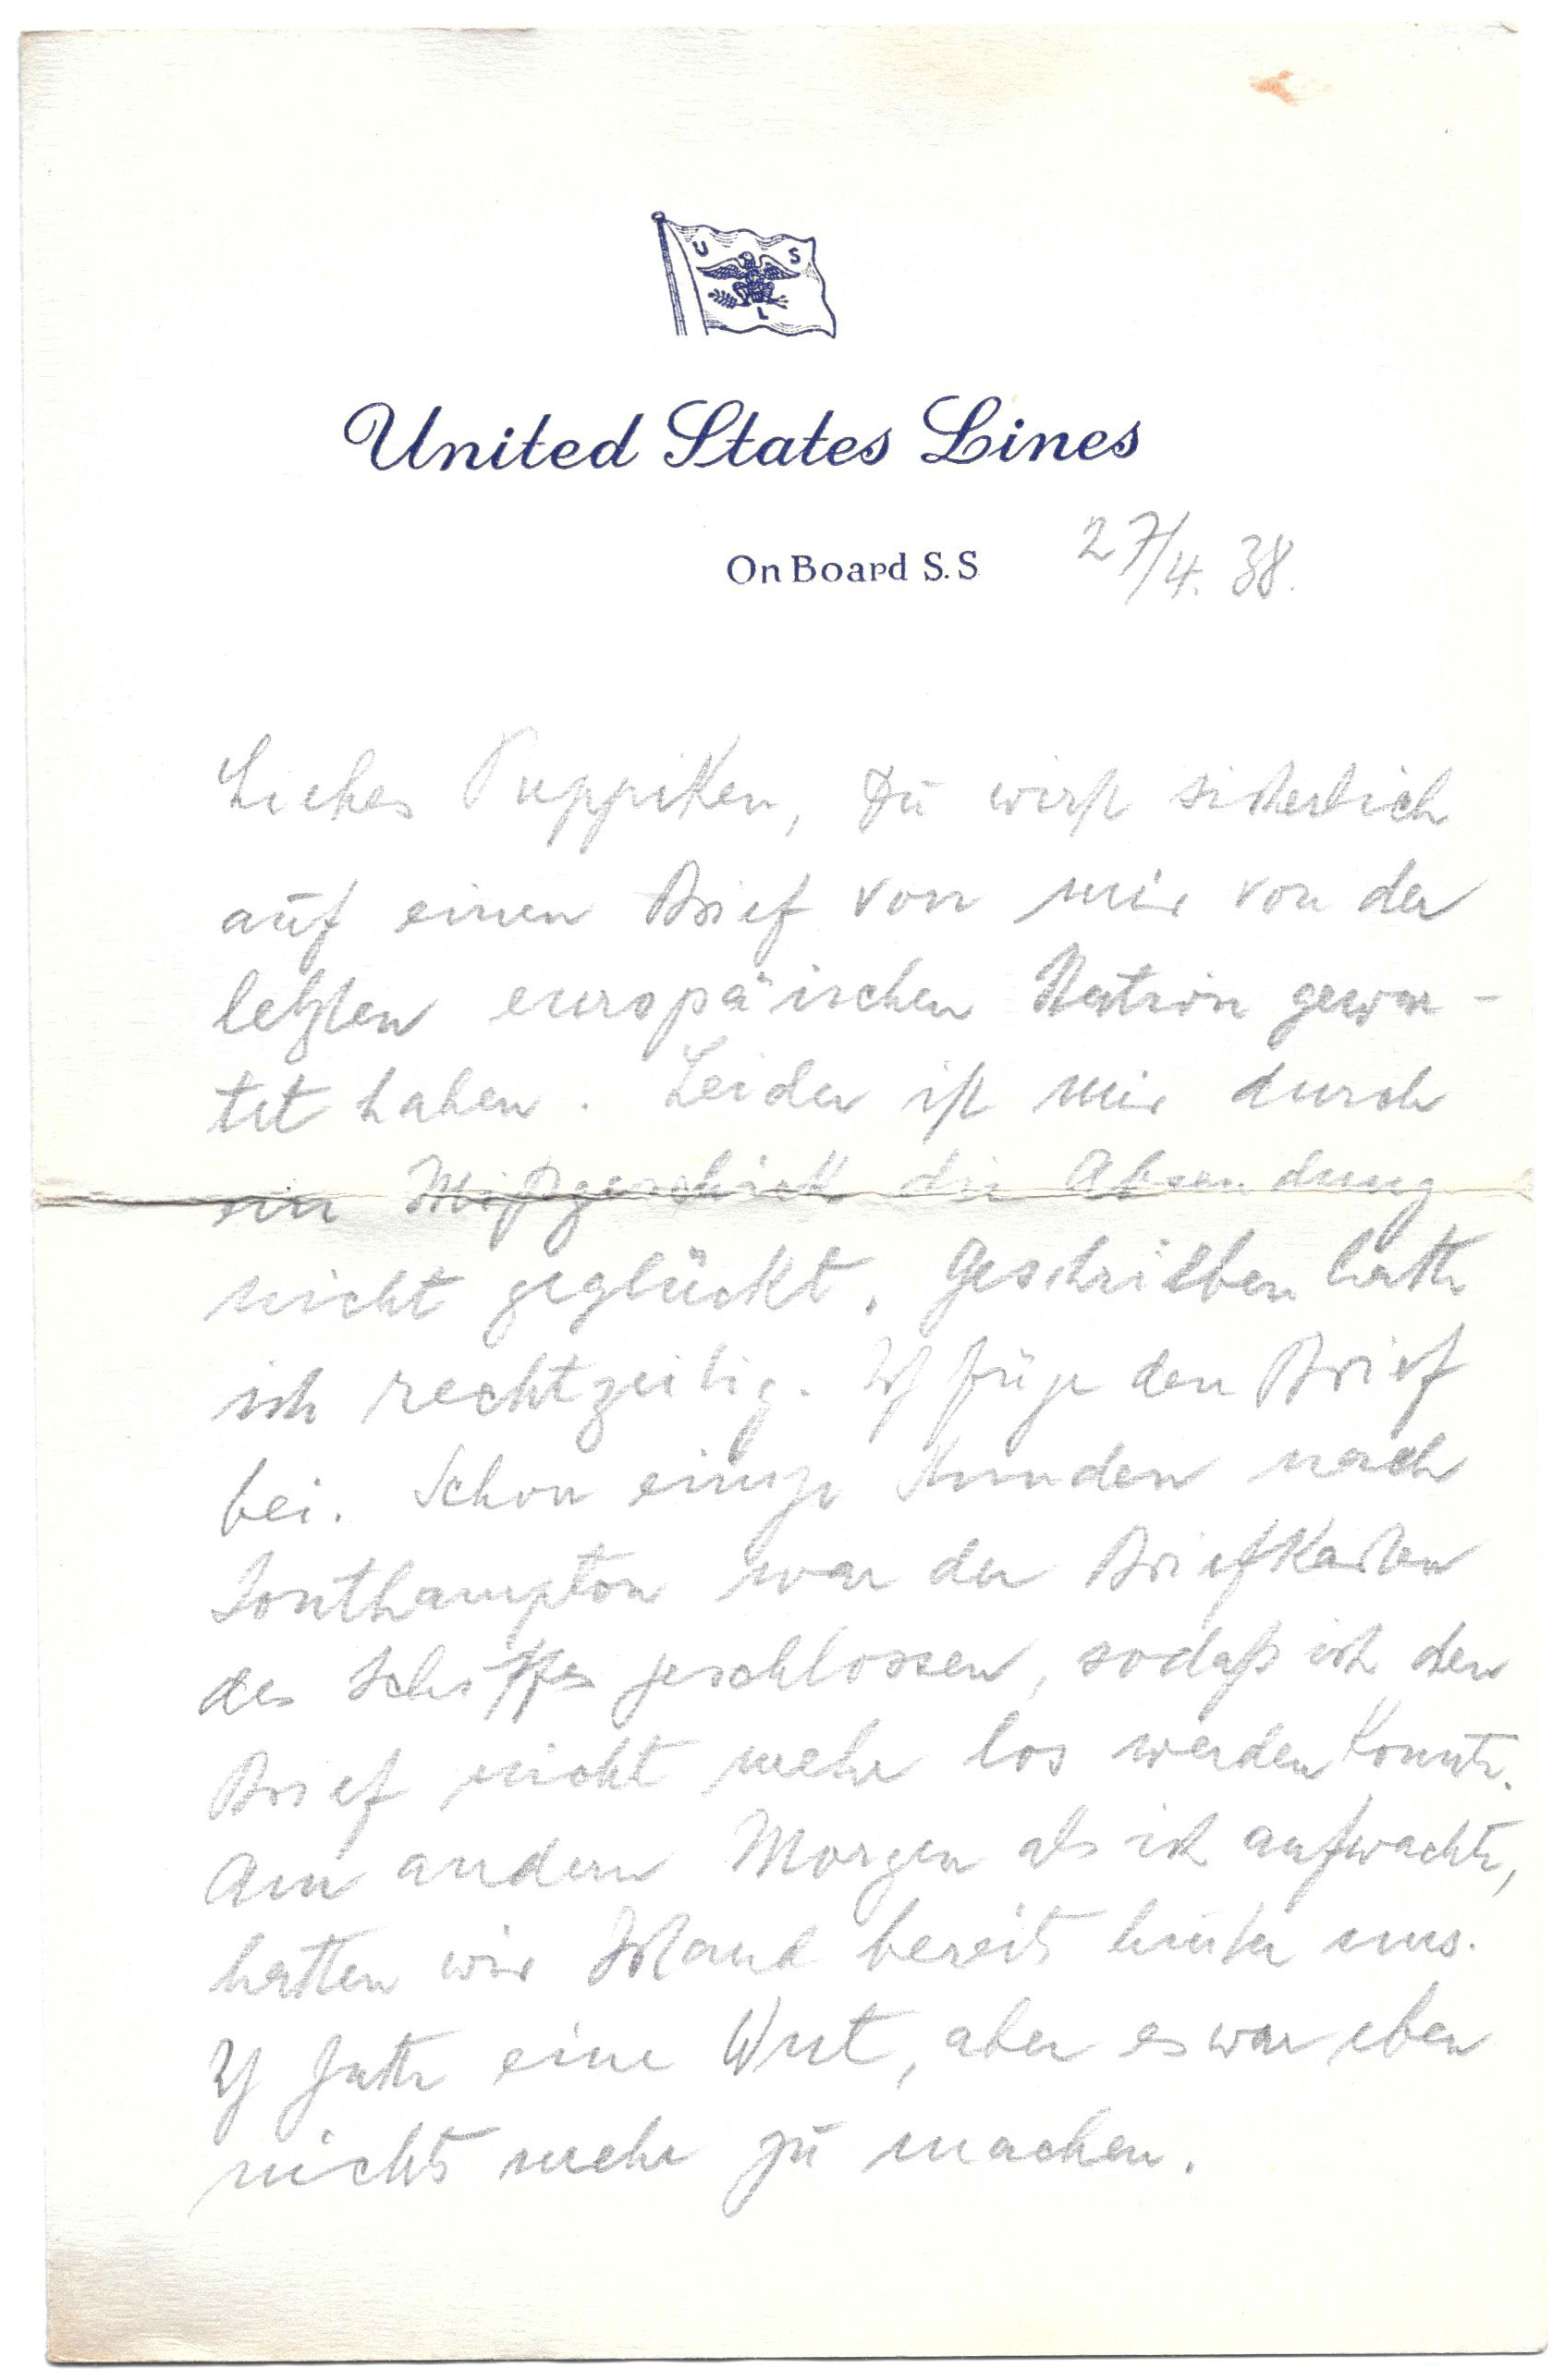 U S
L
United States Lines
On Board S.S
27/4. 38.
Liebes Puppiken, Du wirst sicherlich
auf einen Brief von mir von der
letzten europäischen Station gewar-
tet haben. Leider ist mir durch
ein Mißgeschick die Absendung
nicht geglückt. Geschrieben hatte
ich rechtzeitig. Ich füge den Brief
bei. Schon einige Stunden nach
Southampton war der Briefkasten
des Schiffes geschlossen, sodaß ich den
Brief nicht mehr los werden konnte.
Am andern Morgen als ich aufwachte,
hatten wir Irland bereits hinter uns.
Ich hatte eine Wut, aber es war eben
nichts mehr zu machen.